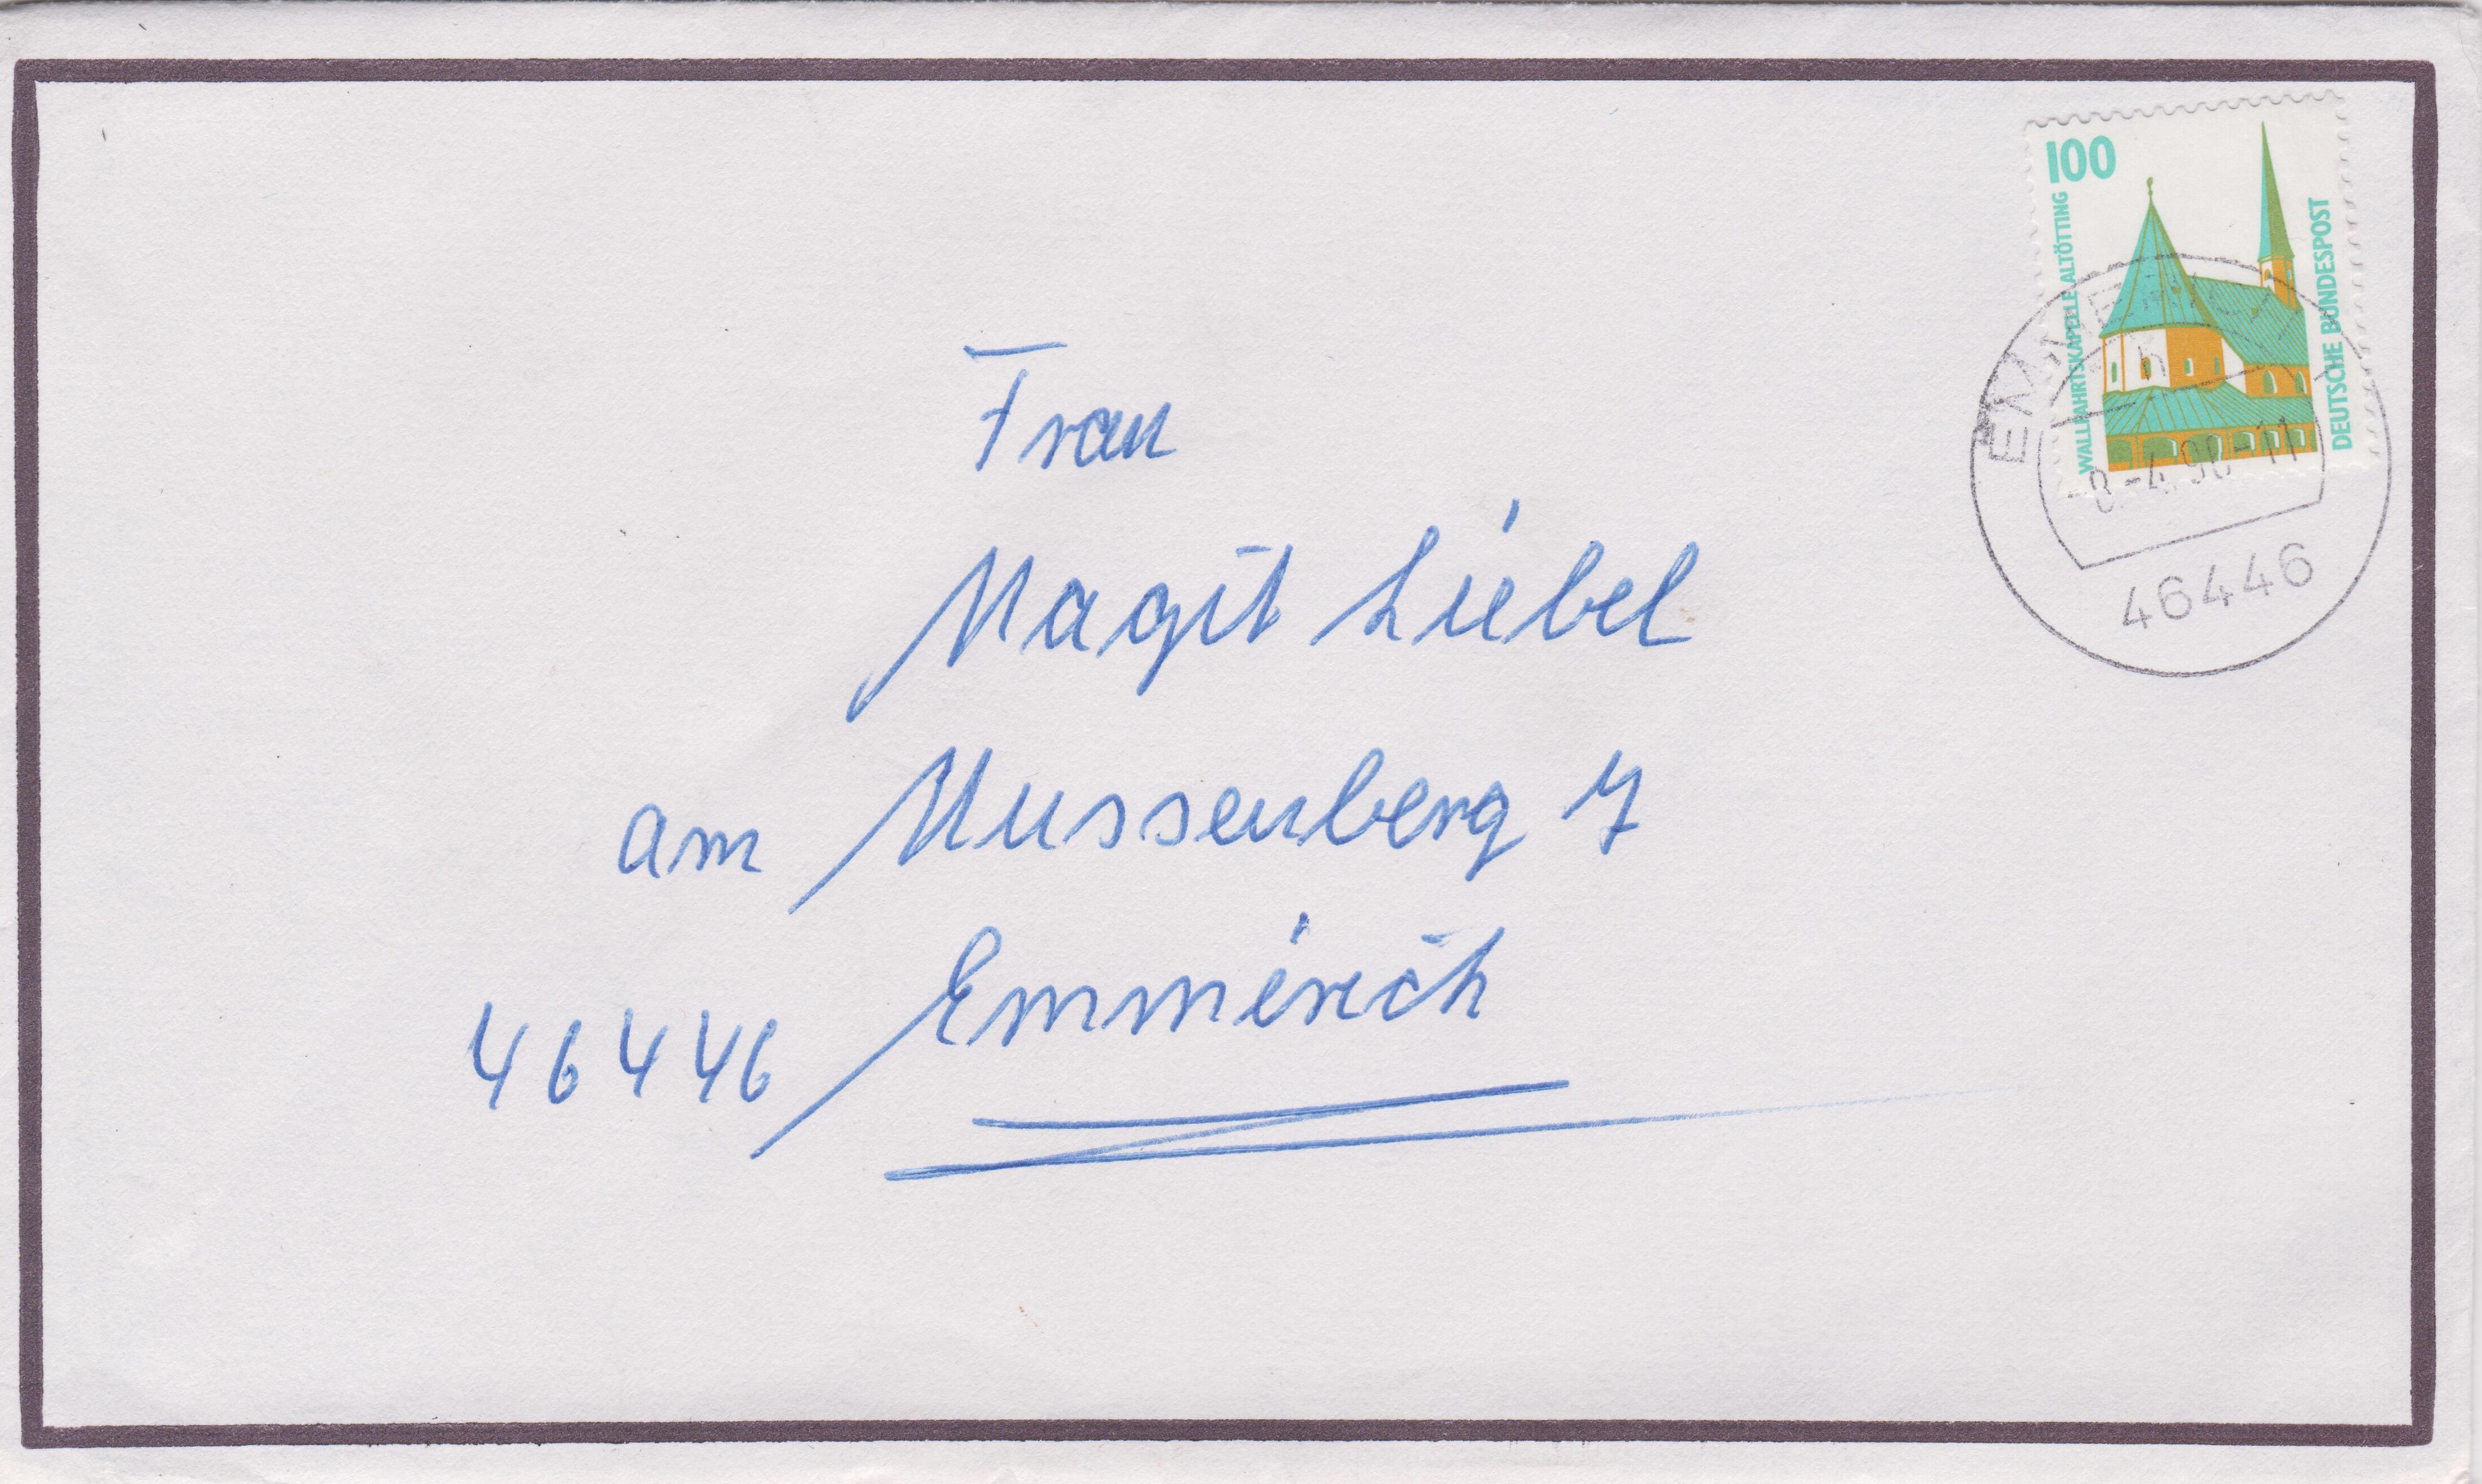 100
WALLFAHRTSKAPELLE ALTÖTTING
DEUTSCHE BUNDESPOST
46446
Frau
Magit Liebel
am Mussenberg 7
46446 Emmerich